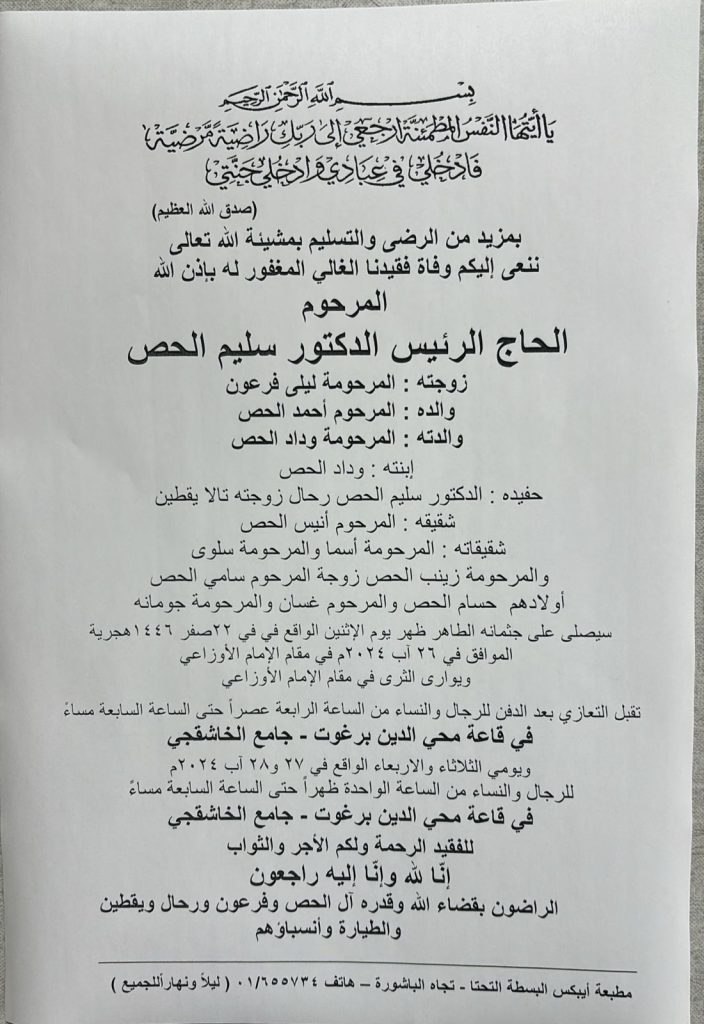 بسم الله الرحمن الرحيم
يا أيتها النفس المطمئنة ارجعي إلى ربك راضية مرضية
فادخلي في عبادي وادخلي جنتي
(صدق الله العظيم)
بمزيد من الرضى والتسليم بمشيئة الله تعالى
ننعى إليكم وفاة فقيدنا الغالي المغفور له بإذن الله
المرحوم
الحاج الرئيس الدكتور سليم الحص
زوجته : المرحومة ليلى فرعون
والده : المرحوم أحمد الحص
والدته : المرحومة وداد الحص
إبنته : وداد الحص
حفيده : الدكتور سليم الحص رحال زوجته تالا يقطين
شقيقه : المرحوم أنيس الحص
شقيقاته : المرحومة أسما والمرحومة سلوى
والمرحومة زينب الحص زوجة المرحوم سامي الحص
أولادهم حسام الحص والمرحوم غسان والمرحومة جومانه
سيصلى على جثمانه الطاهر ظهر يوم الإثنين الواقع في في ٢٢صفر ١٤٤٦هجرية
الموافق في ٢٦ آب ٢٠٢٤م في مقام الإمام الأوزاعي
ويوارى الثرى في مقام الإمام الأوزاعي
تقبل التعازي بعد الدفن للرجال والنساء من الساعة الرابعة عصراً حتى الساعة السابعة مساءً
في قاعة محي الدين برغوت - جامع الخاشقجي
ويومي الثلاثاء والاربعاء الواقع في ٢٧ و٢٨ آب ٢٠٢٤م
للرجال والنساء من الساعة الواحدة ظهراً حتى الساعة السابعة مساءً
في قاعة محي الدين برغوت - جامع الخاشقجي
للفقيد الرحمة ولكم الأجر والثواب
إنّا لله وإنّا إليه راجعون
الراضون بقضاء الله وقدره آل الحص وفرعون ورحال ويقطين
والطيارة وأنسباؤهم
مطبعة أيبكس البسطة التحتا - تجاه الباشورة – هاتف ٠١/٦٥٥٧٣٤ ( ليلاً ونهاراًللجميع )